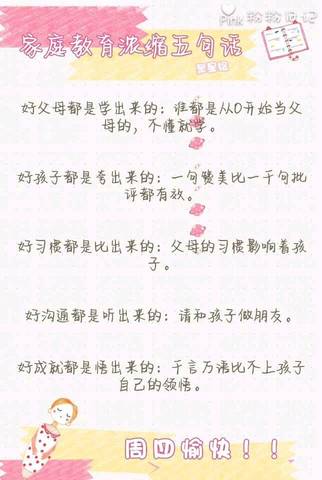 Pink 粉粉日记
家庭教育浓缩五句话
好父母都是学出来的：谁都是从0开始当父
母的，不懂就学。
好孩子都是夸出来的：一句赞美比一千句批
评都有效。
好习惯都是比出来的：父母的习惯影响着孩
子。
好沟通都是听出来的：请和孩子做朋友。
好成就都是悟出来的：千言万语比不上孩子
自己的领悟。
周四愉快！！